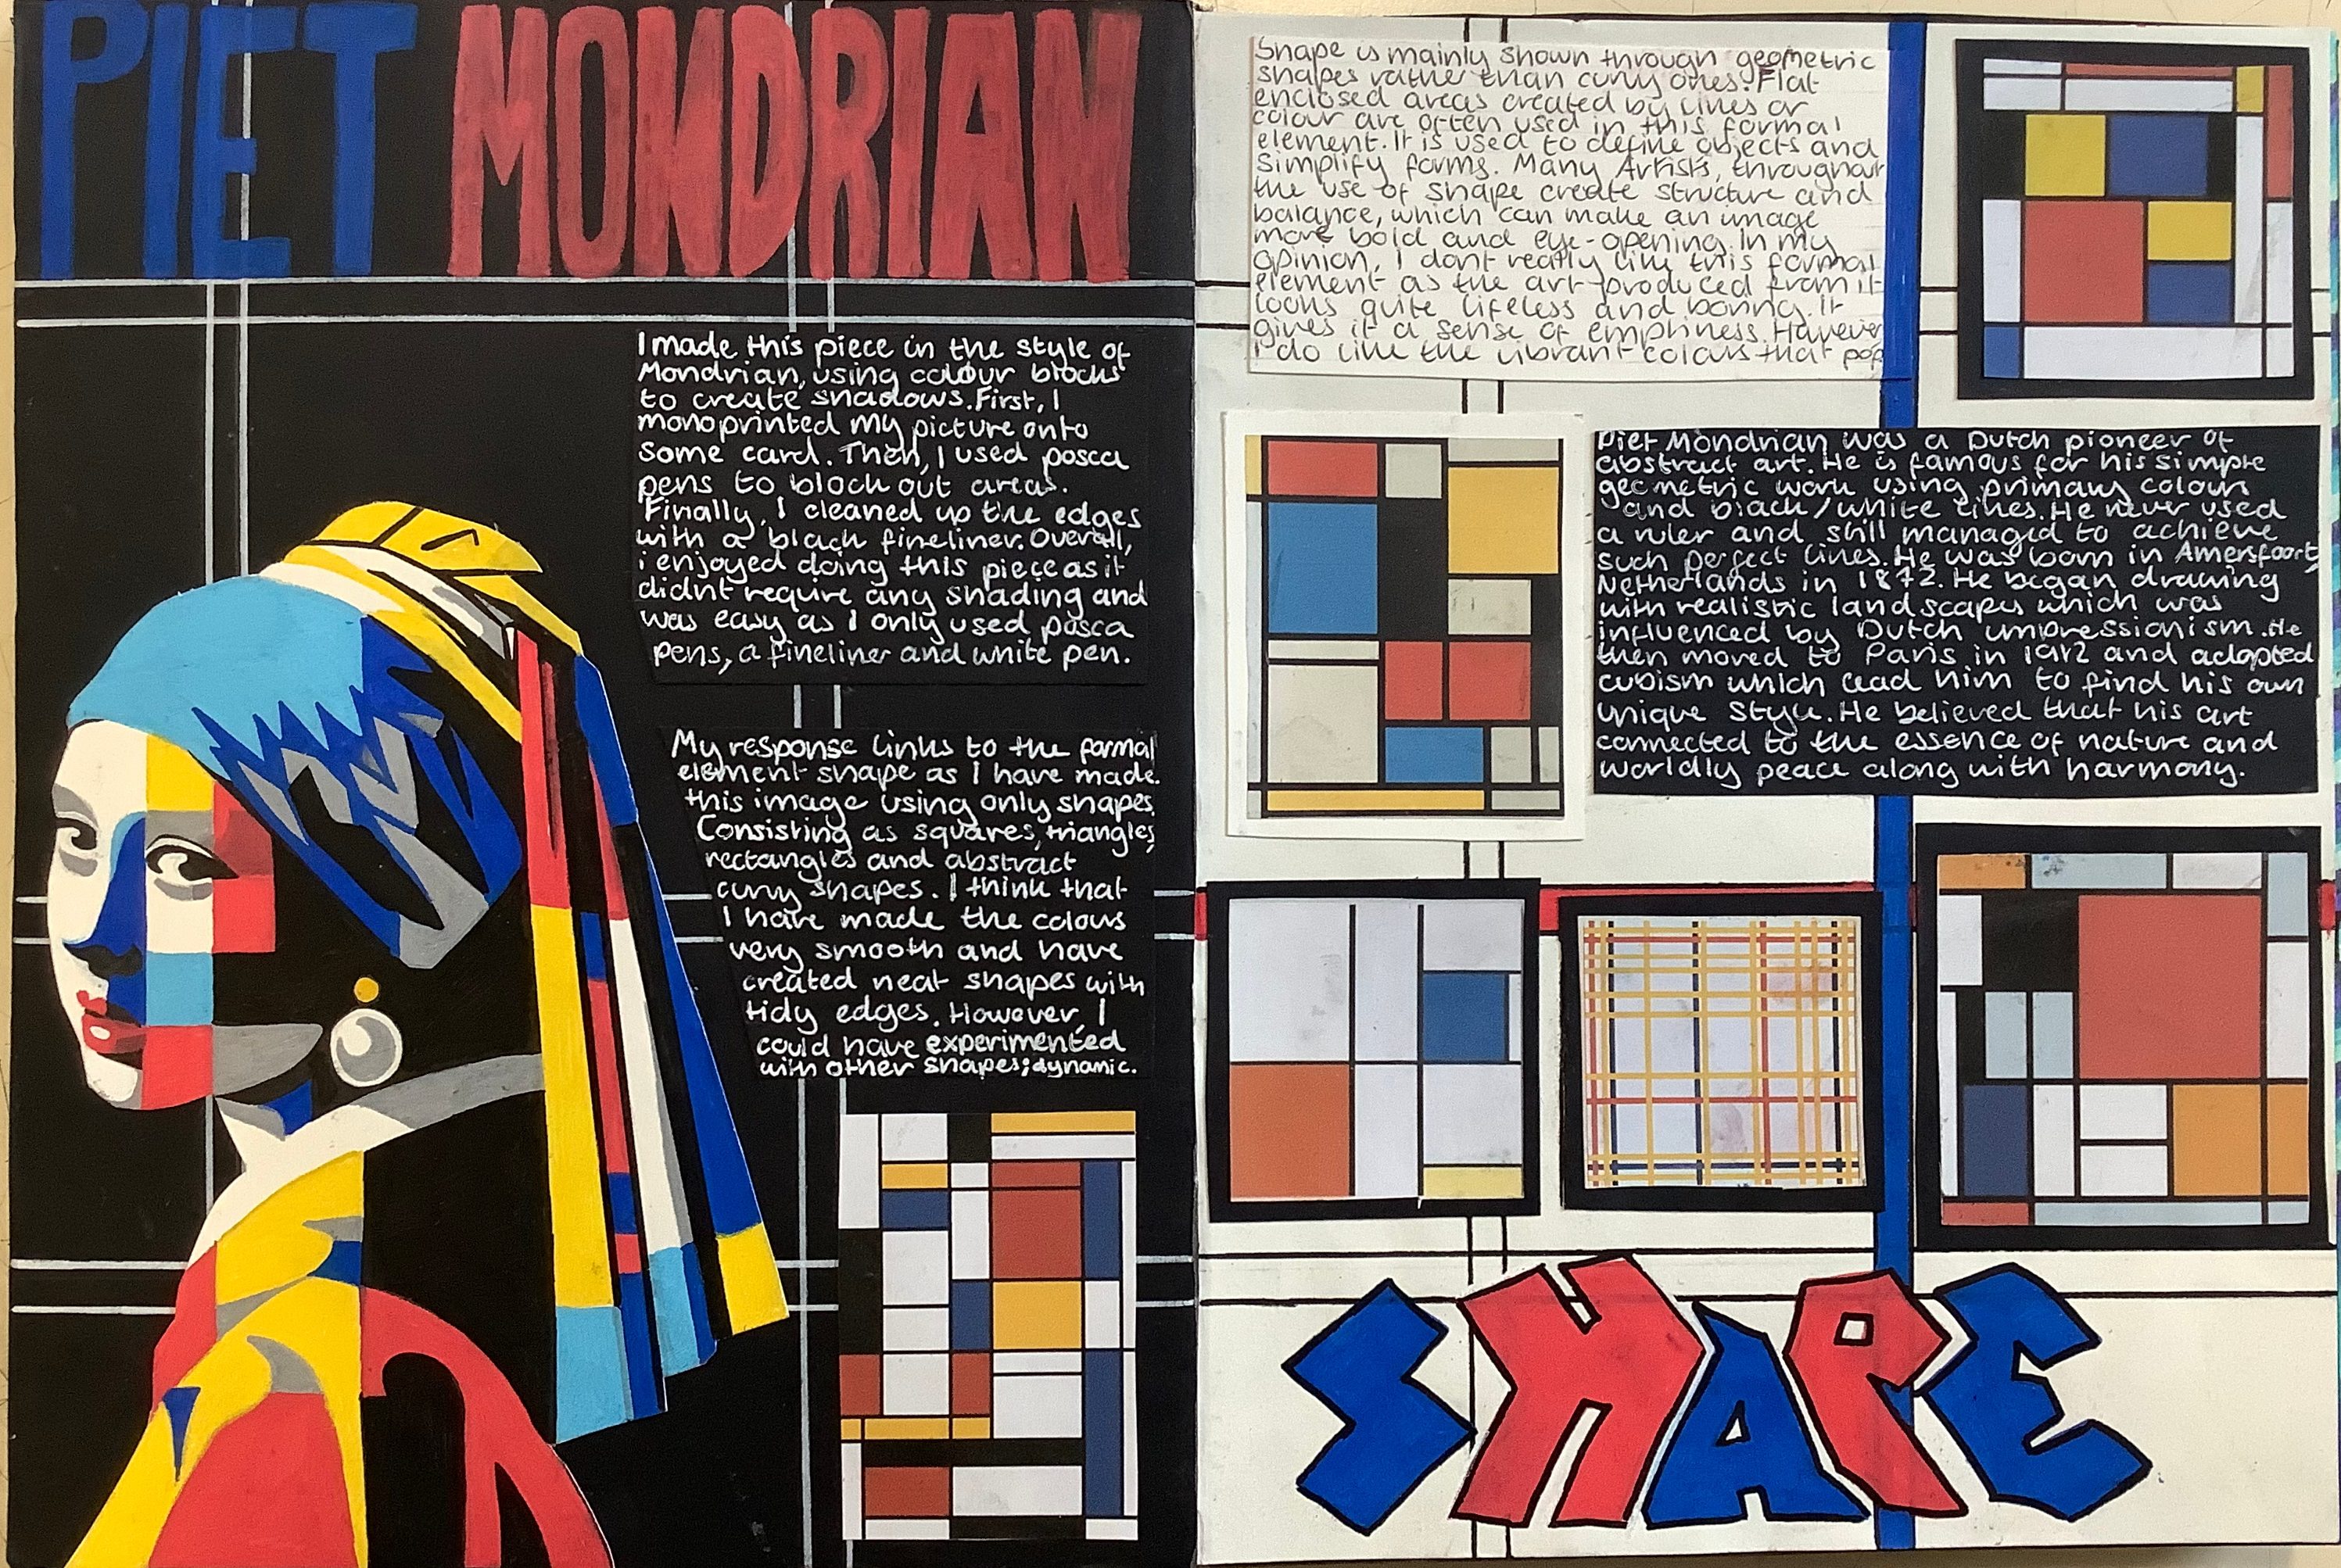 PIET MONDRIAN
I made this piece in the style of
Mondrian, using colour blocks
to create shadows. First, I
monoprinted my picture onto
some card. Then, I used posca
pens to block out areas.
Finally, I cleaned up the edges
with a black fineliner. Overall,
i enjoyed doing this piece as it
didnt require any shading and
was easy as I only used posca
pens, a fineliner and white pen.
My response links to the formal
element shape as I have made
this image using only shapes.
Consisting as squares, triangles,
rectangles and abstract
curvy shapes. I think that
I have made the colours
very smooth and have
created neat shapes with
tidy edges. However, I
could have experimented
with other shapes; dynamic.
Shape is mainly shown through geometric
shapes rather than curvy ones. Flat
enclosed areas created by lines or
colour are often used in this formal
element. It is used to define objects and
simplify forms. Many Artists, throughout
the use of shape create structure and
balance, which can make an image
more bold and eye-opening. In my
opinion, I dont really like this formal
element as the art produced from it
looks quite lifeless and boring. It
gives it a sense of emptiness. However
I do like the vibrant colours that pop
Piet Mondrian was a Dutch pioneer of
abstract art. He is famous for his simple
geometric work using primary colours
and black/white lines. He never used
a ruler and still managed to achieve
such perfect lines. He was born in Amersfoort,
Netherlands in 1872. He began drawing
with realistic landscapes which was
influenced by Dutch impressionism. He
then moved to Paris in 1912 and adopted
cubism which lead him to find his own
unique style. He believed that his art
connected to the essence of nature and
worldly peace along with harmony.
SHAPE